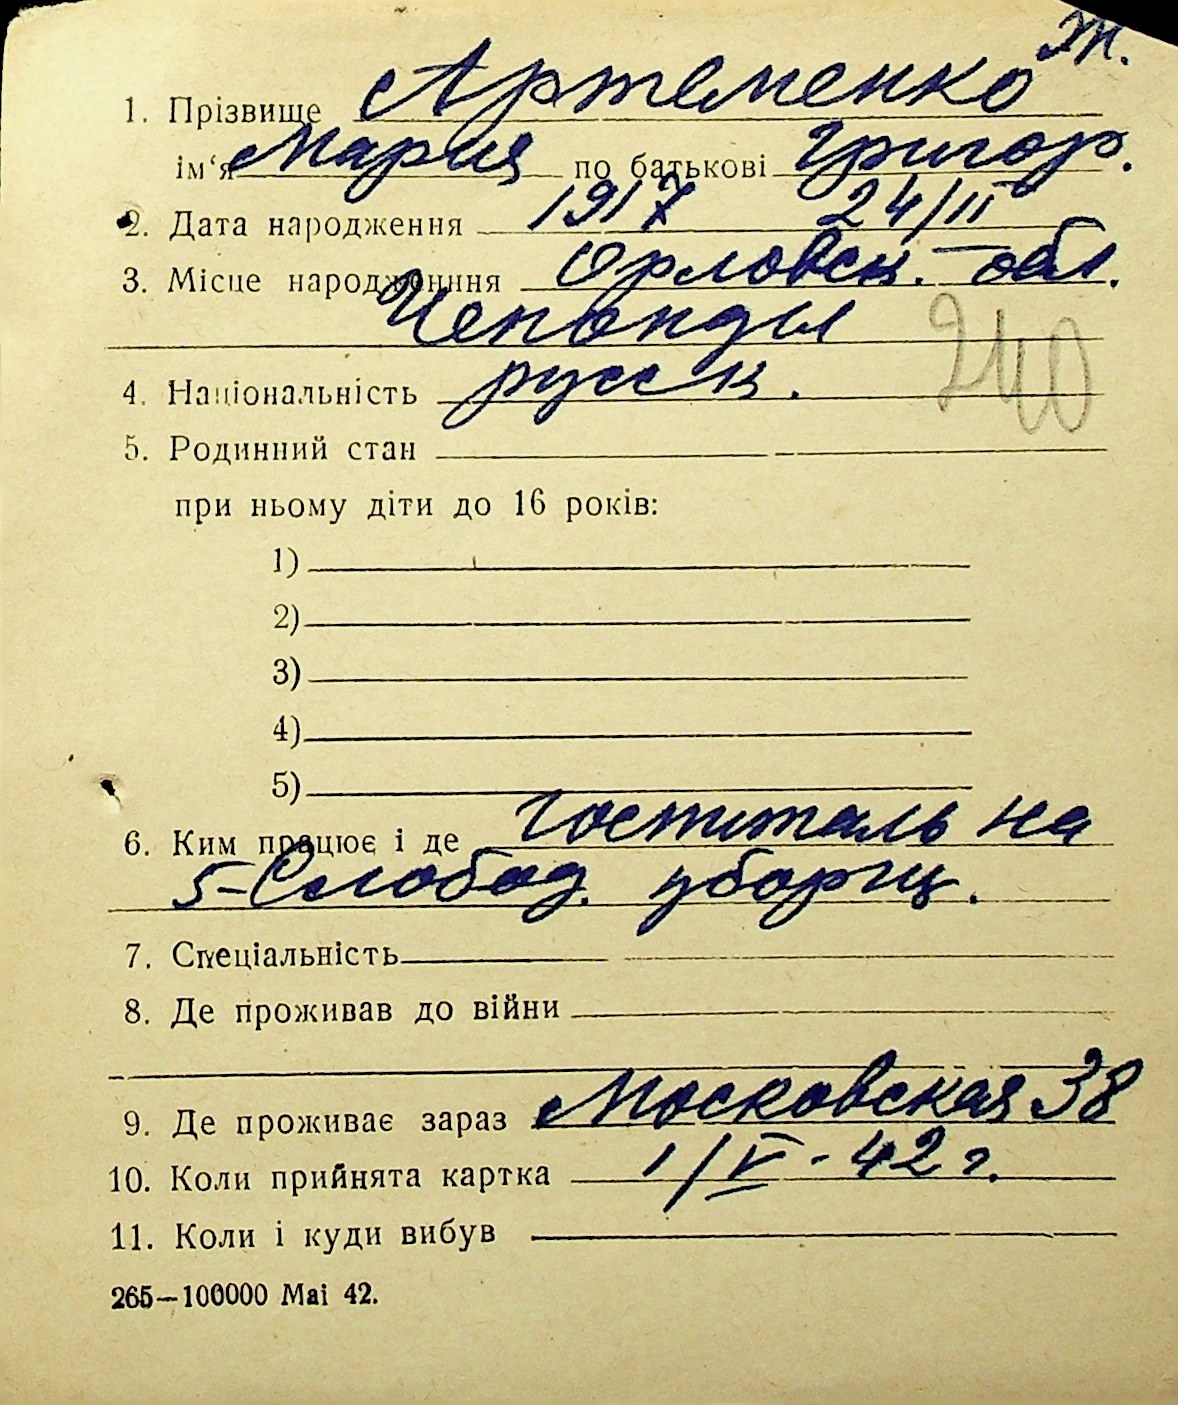 Ж.
1. Прізвище Артеменко
ім‘я Мария по батькові Григор.
2. Дата народження 1917 24/II
3. Місце народження Орловск. обл.
4. Національність русск.
240
5. Родинний стан
при ньому діти до 16 років:
1)
2)
3)
4)
5)
6. Ким працює і де госпиталь на
5-Слобод. уборщ.
7. Спеціальність
8. Де проживав до війни
9. Де проживає зараз Московская 38
10. Коли прийнята картка 1/V-42 г.
11. Коли і куди вибув
265—100000 Mai 42.